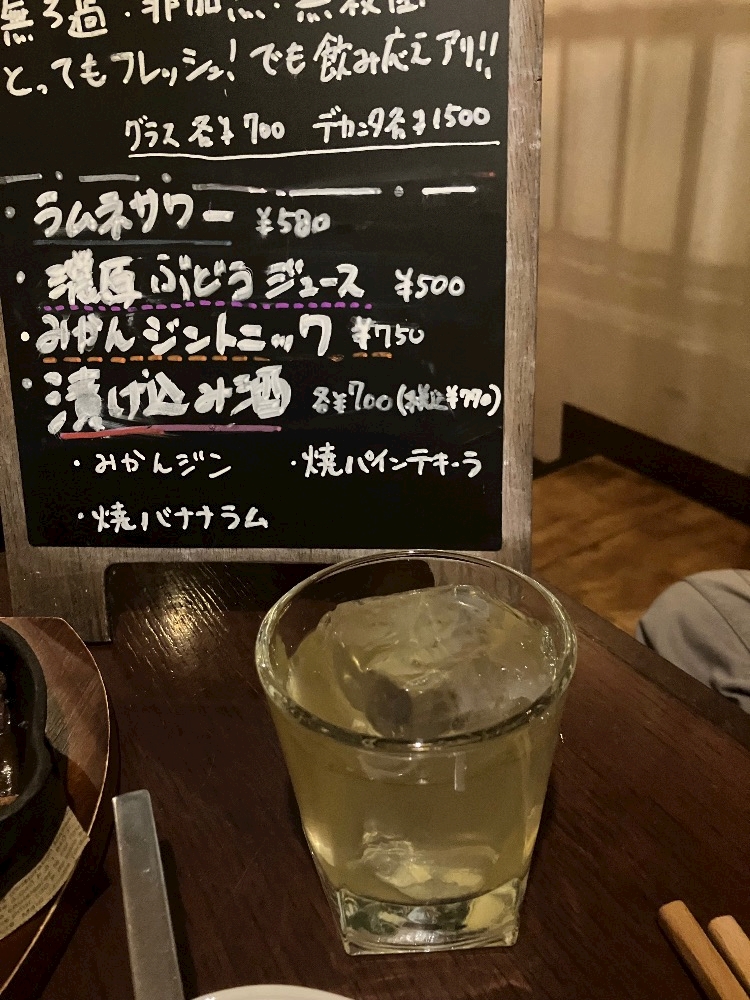 無ろ過・非加熱・無殺菌!
とってもフレッシュ! でも飲み応えアリ!!
グラス 各¥700 デカンタ各¥1500
・ラムネサワー ¥580
・濃厚ぶどうジュース ¥500
・みかんジントニック ¥750
・漬け込み酒 各¥700(税込¥770)
・みかんジン ・焼パインテキーラ
・焼バナナラム